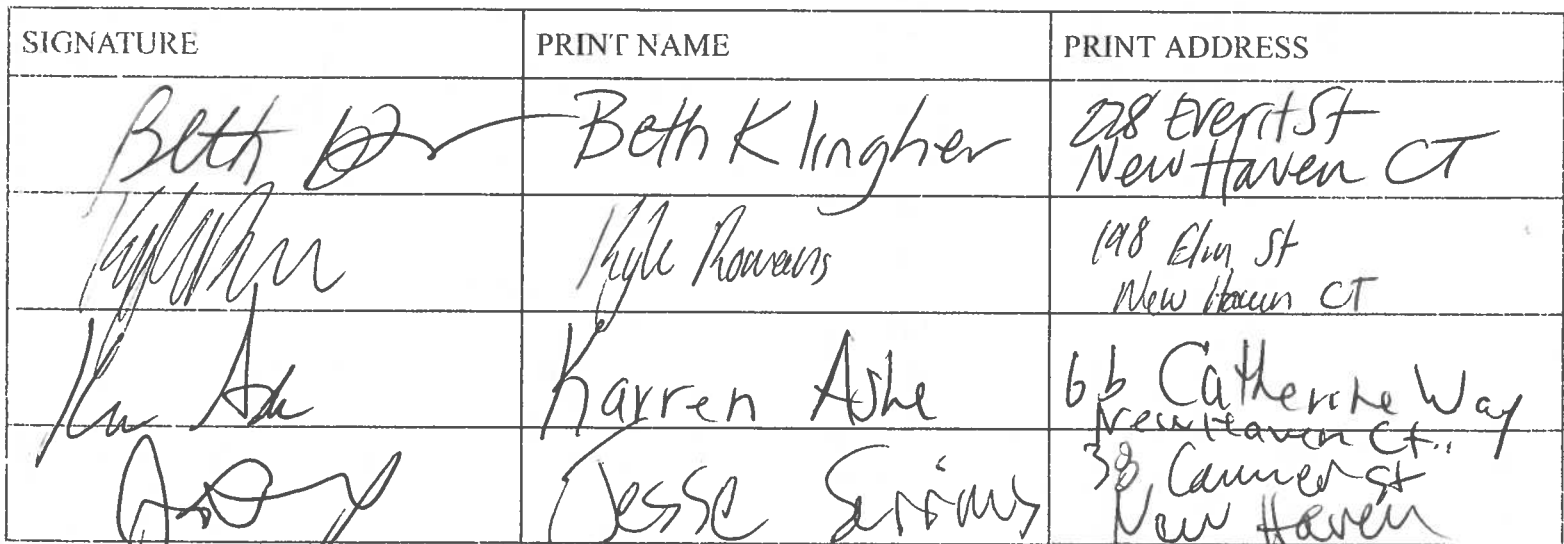 SIGNATURE PRINT NAME PRINT ADDRESS
Beth Beth Klingher 228 Everit St
New Haven CT
Kyle 198 Elm St
New Haven CT
Karren Ashe 66 Catherine Way
New Haven Ct.
Jesse 38 Canner St
New Haven